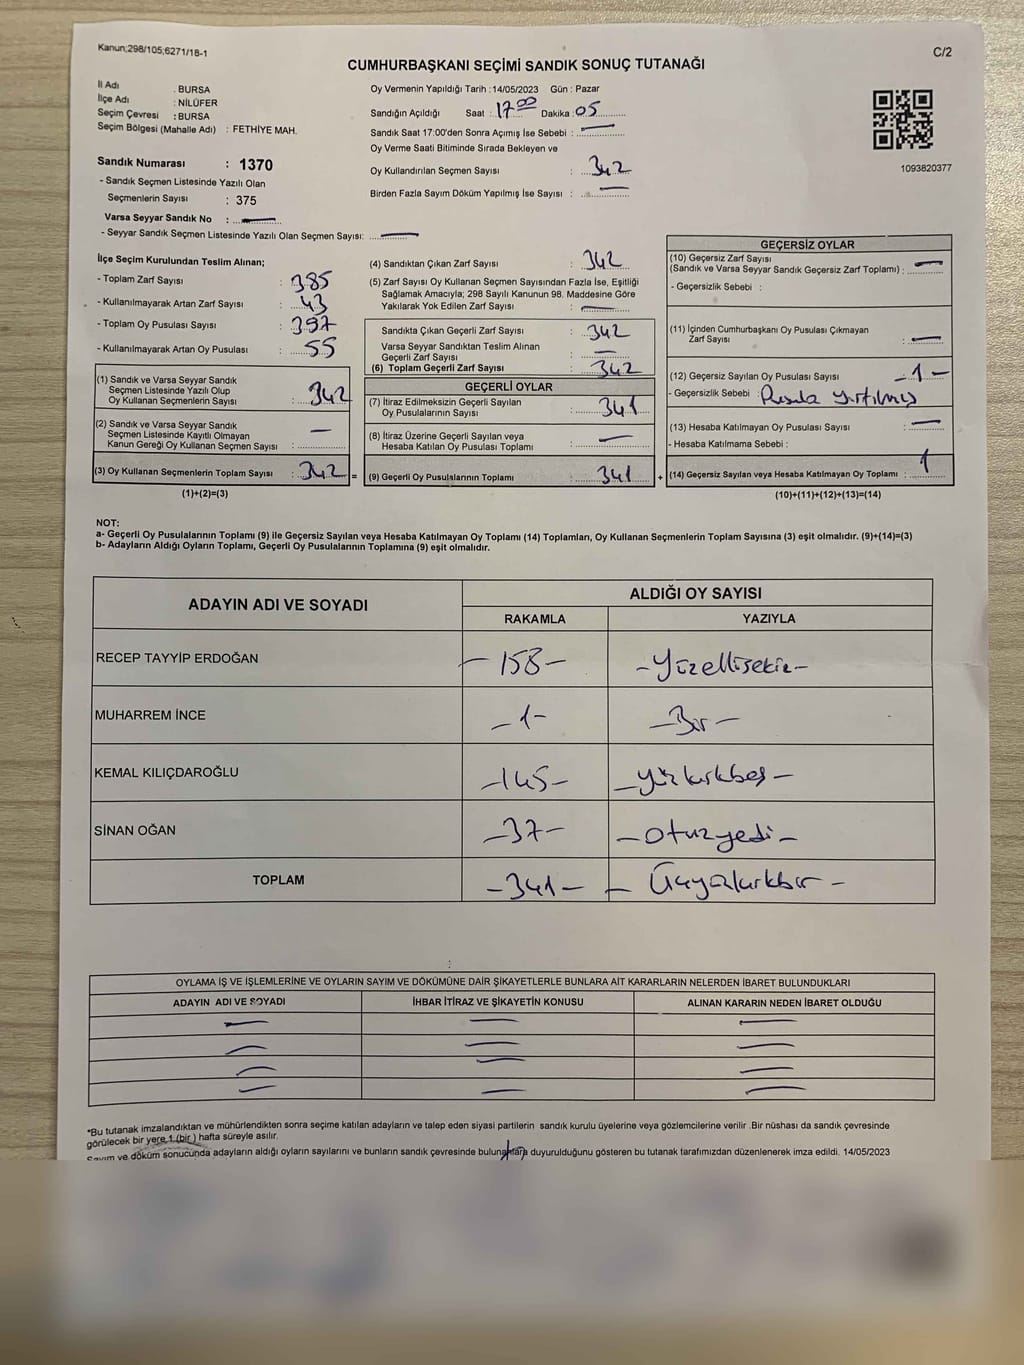 Kanun;298/105;6271/18-1
C/2
CUMHURBAŞKANI SEÇİMİ SANDIK SONUÇ TUTANAĞI
İl Adı : BURSA
İlçe Adı : NİLÜFER
Seçim Çevresi : BURSA
Seçim Bölgesi (Mahalle Adı) : FETHİYE MAH.
Sandık Numarası : 1370
- Sandık Seçmen Listesinde Yazılı Olan
Seçmenlerin Sayısı : 375
Varsa Seyyar Sandık No :
- Seyyar Sandık Seçmen Listesinde Yazılı Olan Seçmen Sayısı:
Oy Vermenin Yapıldığı Tarih :14/05/2023 Gün : Pazar
Sandığın Açıldığı Saat : 17 00 Dakika : 05
Sandık Saat 17:00'den Sonra Açımış İse Sebebi :
Oy Verme Saati Bitiminde Sırada Bekleyen ve
Oy Kullandırılan Seçmen Sayısı : 342
Birden Fazla Sayım Döküm Yapılmış İse Sayısı :
1093820377
İlçe Seçim Kurulundan Teslim Alınan;
- Toplam Zarf Sayısı : 385
- Kullanılmayarak Artan Zarf Sayısı : 43
- Toplam Oy Pusulası Sayısı : 397
- Kullanılmayarak Artan Oy Pusulası : 55
(1) Sandık ve Varsa Seyyar Sandık
Seçmen Listesinde Yazılı Olup
Oy Kullanan Seçmenlerin Sayısı : 342
(2) Sandık ve Varsa Seyyar Sandık
Seçmen Listesinde Kayıtlı Olmayan
Kanun Gereği Oy Kullanan Seçmen Sayısı : —
(3) Oy Kullanan Seçmenlerin Toplam Sayısı : 342 =
(1)+(2)=(3)
(4) Sandıktan Çıkan Zarf Sayısı : 342
(5) Zarf Sayısı Oy Kullanan Seçmen Sayısından Fazla İse, Eşitliği
Sağlamak Amacıyla; 298 Sayılı Kanunun 98. Maddesine Göre
Yakılarak Yok Edilen Zarf Sayısı : —
Sandıkta Çıkan Geçerli Zarf Sayısı : 342
Varsa Seyyar Sandıktan Teslim Alınan
Geçerli Zarf Sayısı : —
(6) Toplam Geçerli Zarf Sayısı : 342
GEÇERLİ OYLAR
(7) İtiraz Edilmeksizin Geçerli Sayılan
Oy Pusulalarının Sayısı : 341
(8) İtiraz Üzerine Geçerli Sayılan veya
Hesaba Katılan Oy Pusulası Toplamı : —
(9) Geçerli Oy Pusulalarının Toplamı : 341 +
GEÇERSİZ OYLAR
(10) Geçersiz Zarf Sayısı
(Sandık ve Varsa Seyyar Sandık Geçersiz Zarf Toplamı) : —
- Geçersizlik Sebebi :
(11) İçinden Cumhurbaşkanı Oy Pusulası Çıkmayan
Zarf Sayısı : —
(12) Geçersiz Sayılan Oy Pusulası Sayısı : -1-
- Geçersizlik Sebebi : Pusula yırtılmış
(13) Hesaba Katılmayan Oy Pusulası Sayısı : —
- Hesaba Katılmama Sebebi :
(14) Geçersiz Sayılan veya Hesaba Katılmayan Oy Toplamı : 1
(10)+(11)+(12)+(13)=(14)
NOT:
a- Geçerli Oy Pusulalarının Toplamı (9) ile Geçersiz Sayılan veya Hesaba Katılmayan Oy Toplamı (14) Toplamları, Oy Kullanan Seçmenlerin Toplam Sayısına (3) eşit olmalıdır. (9)+(14)=(3)
b- Adayların Aldığı Oyların Toplamı, Geçerli Oy Pusulalarının Toplamına (9) eşit olmalıdır.
ADAYIN ADI VE SOYADI
ALDIĞI OY SAYISI
RAKAMLA YAZIYLA
RECEP TAYYİP ERDOĞAN -158- -Yüzellisekiz-
MUHARREM İNCE -1- -Bir-
KEMAL KILIÇDAROĞLU -145- -yüzkırkbeş-
SİNAN OĞAN -37- -otuzyedi-
TOPLAM -341- -Üçyüzkırkbir-
OYLAMA İŞ VE İŞLEMLERİNE VE OYLARIN SAYIM VE DÖKÜMÜNE DAİR ŞİKAYETLERLE BUNLARA AİT KARARLARIN NELERDEN İBARET BULUNDUKLARI
ADAYIN ADI VE SOYADI İHBAR İTİRAZ VE ŞİKAYETİN KONUSU ALINAN KARARIN NEDEN İBARET OLDUĞU
*Bu tutanak imzalandıktan ve mühürlendikten sonra seçime katılan adayların ve talep eden siyasi partilerin sandık kurulu üyelerine veya gözlemcilerine verilir .Bir nüshası da sandık çevresinde
görülecek bir yere 1 (bir ) hafta süreyle asılır.
Sayım ve döküm sonucunda adayların aldığı oyların sayılarını ve bunların sandık çevresinde bulunanlara duyurulduğunu gösteren bu tutanak tarafımızdan düzenlenerek imza edildi. 14/05/2023